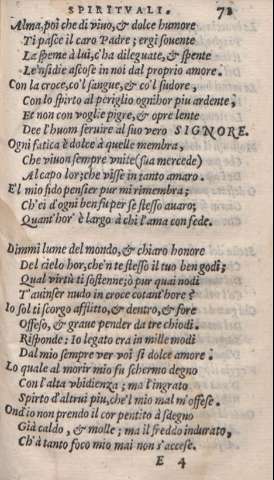 SPIRITVALI. 72
Alma, poi che di viuo, & dolce humore
Ti pasce il caro Padre; ergi souente
La speme à lui, c'ha dileguate, & spente
Le'nsidie ascose in noi dal proprio amore.
Con la croce, co'l sangue, & co'l sudore,
Con lo spirto al periglio ogn'hor piu ardente,
Et non con voglie pigre, & opre lente
Dee l'huom seruire al suo vero SIGNORE.
Ogni fatica è dolce à quelle membra,
Che viuon sempre vnite (sua mercede)
Al capo lor; che visse in tanto amaro.
E'l mio fido pensier pur mi rimembra;
Ch'ei d'ogni ben fu per se stesso auaro;
Quant'hor è largo à chi l'ama con fede.
Dimmi lume del mondo, & chiaro honore
Del cielo hor, che'n te stesso il tuo ben godi;
Qual virtù ti sostenne; ò pur quai nodi
T'auinser nudo in croce cotant'hore?
Io sol ti scorgo afflitto, & dentro, & fore
Offeso, & graue pender da tre chiodi.
Risponde: Io legato era in mille modi
Dal mio sempre ver voi sì dolce amore.
Lo quale al morir mio fu schermo degno
Con l'alta vbidienza; ma l'ingrato
Spirto d'altrui piu, che'l mio mal m'offese.
Ond'io non prendo il cor pentito à sdegno
Già caldo, & molle; ma il freddo indurato,
Ch'à tanto foco mio mai non s'accese.
E 4